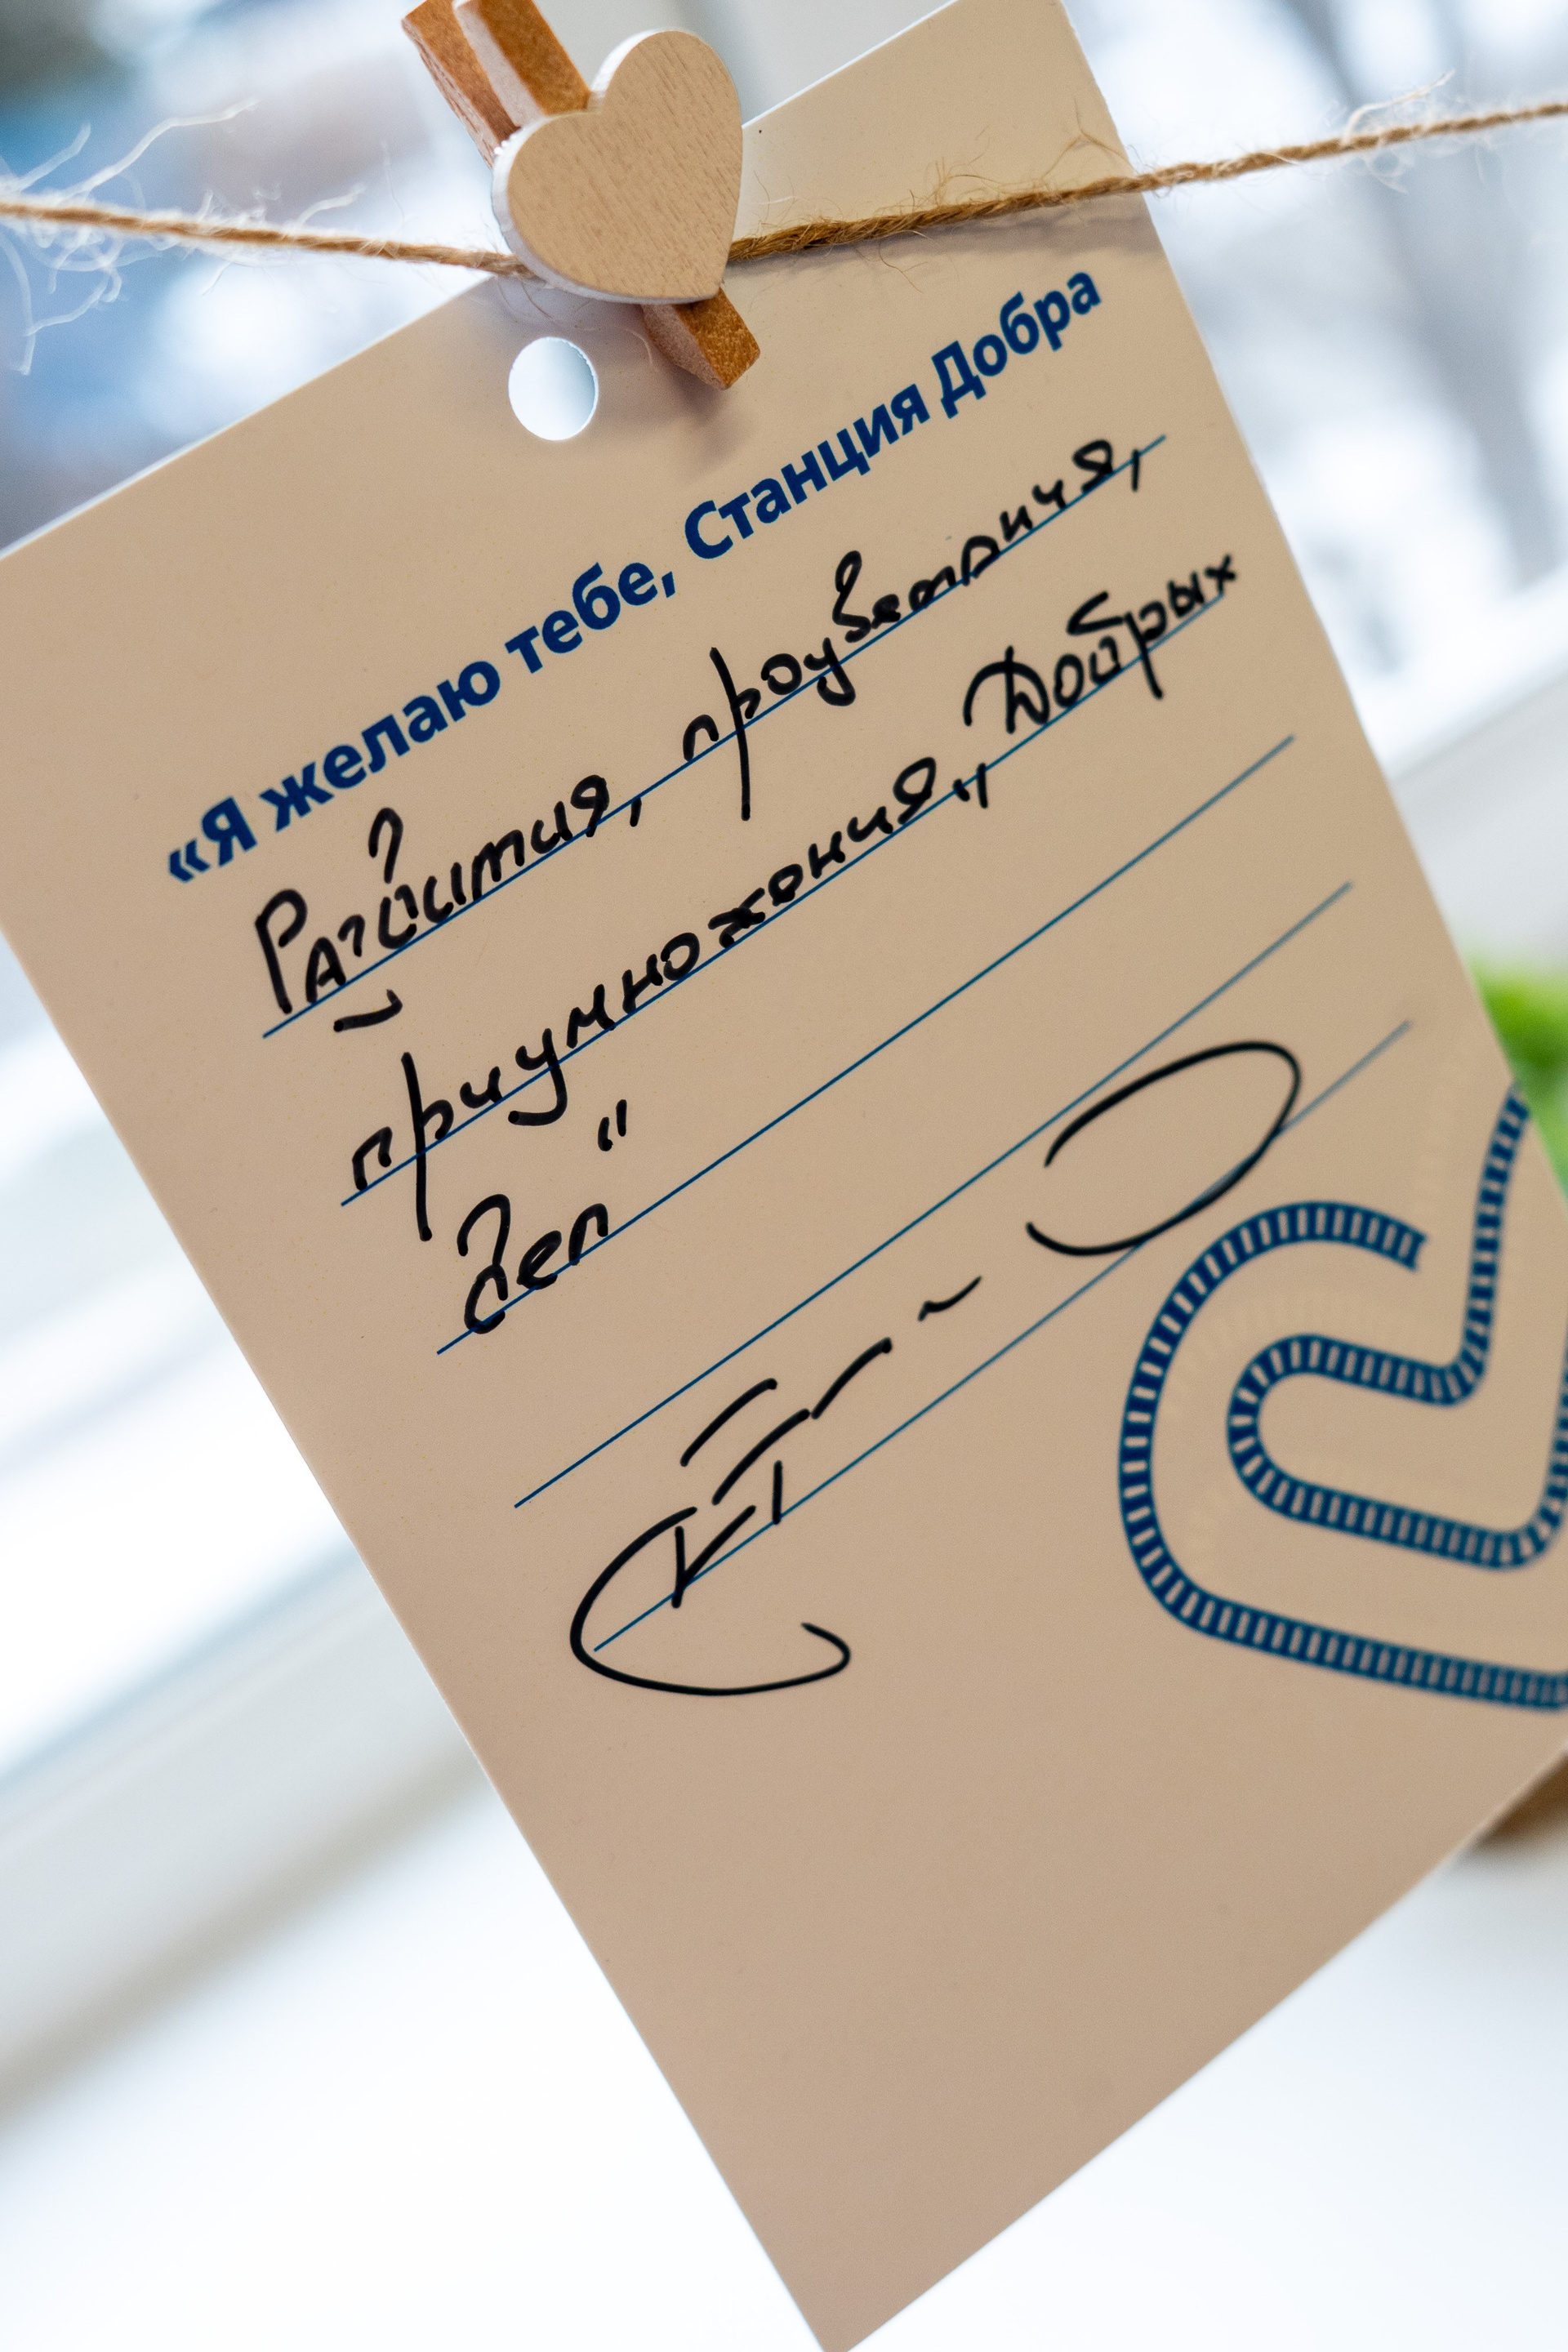 «Я желаю тебе, Станция Добра
Развития, процветания,
приумножения „Добрых
дел“